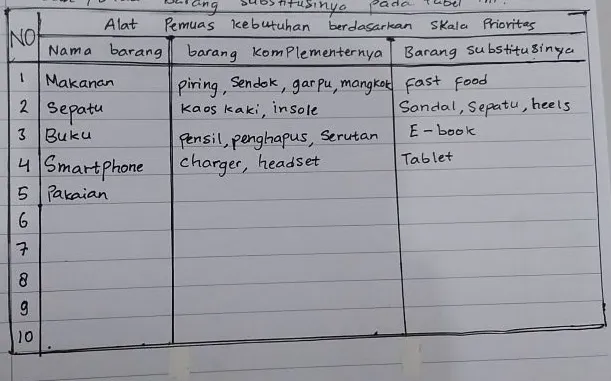 barang substitusinya pada tabel
NO Alat Pemuas kebutuhan berdasarkan Skala Prioritas
Nama barang barang komplementernya Barang substitusinya
1 Makanan piring, Sendok, garpu, mangkok fast food
2 Sepatu kaos kaki, insole Sandal, Sepatu, heels
3 Buku pensil, penghapus, Serutan E-book
4 Smartphone charger, headset Tablet
5 Pakaian
6
7
8
9
10